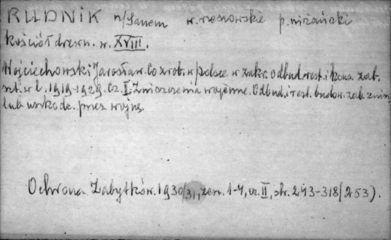 RUDNIK n/Sanem w. rzeszowskie p. niżański
Kościół drewn. w. XVIII.
Wojciechowski Jarosław. Co zrob. w Polsce w zakr. odbud. rest. i kons. zab.
szt. w l. 1919-1929. Cz. I. Zniszczenia wojenne. Odbud. i rest. budow. zab. znisz.
lub uszkodz. przez wojnę.
Ochrona Zabytków. 1930/31, zesz. 1-4, cz. II, str. 243-318 (253).